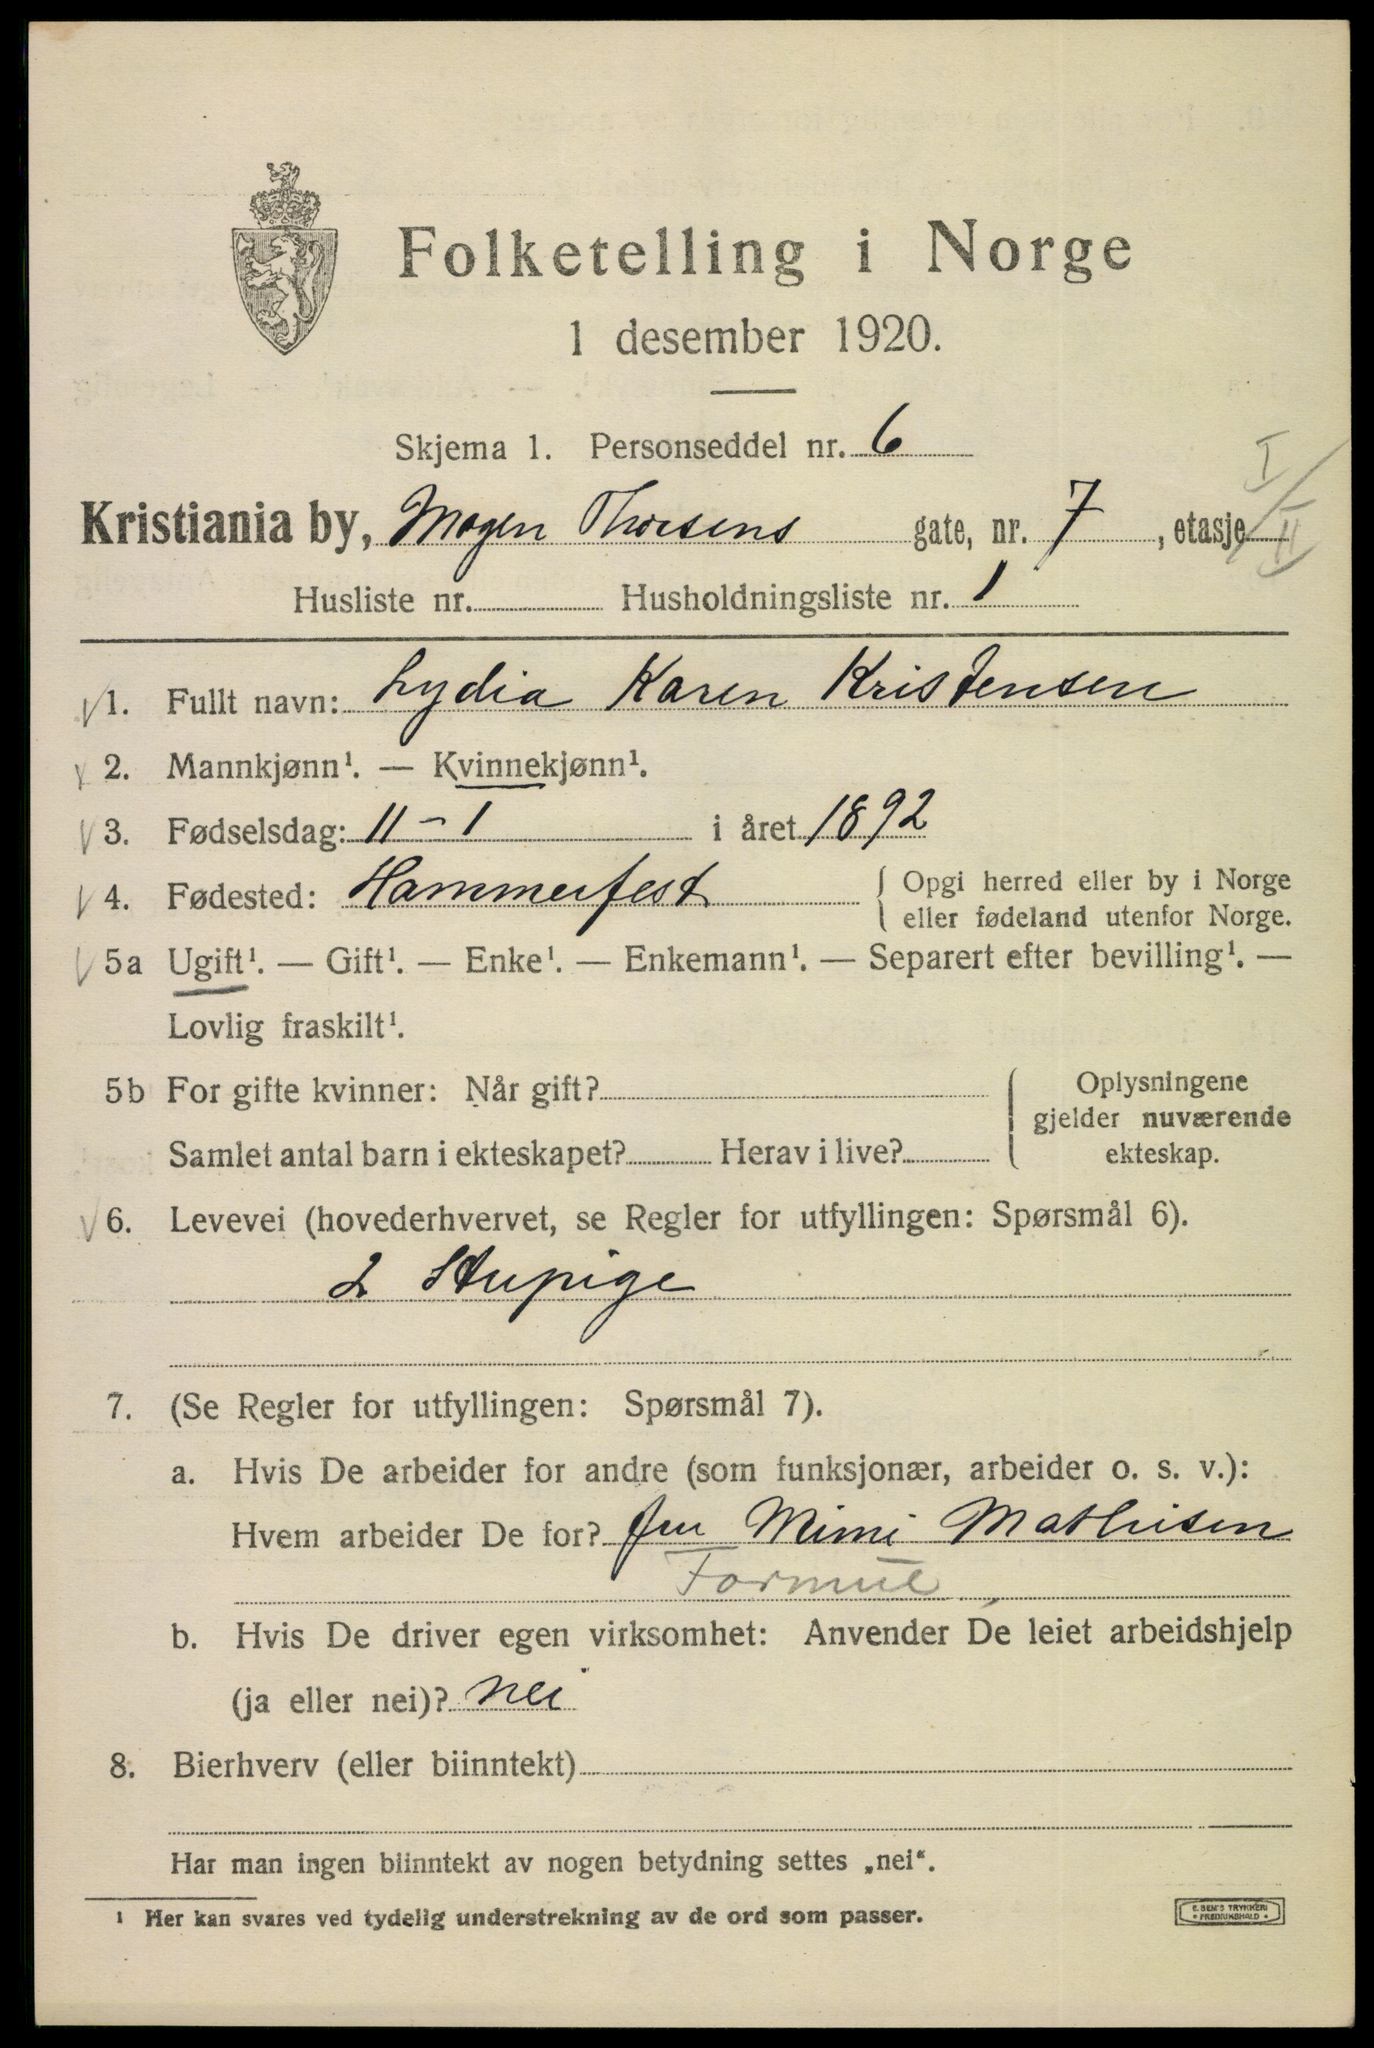 Folketelling i Norge
1 desember 1920.
Skjema 1. Personseddel nr. 6
Kristiania by, Mogen Thorsens gate, nr. 7, etasje I/II
Husliste nr. Husholdningsliste nr. 1
1. Fullt navn: Lydia Karen Kristensen
2. Mannkjønn¹. — Kvinnekjønn¹.
3. Fødselsdag: 11-1 i året 1892
4. Fødested: Hammerfest { Opgi herred eller by i Norge
eller fødeland utenfor Norge.
5a Ugift¹. — Gift¹. — Enke¹. — Enkemann¹. — Separert efter bevilling¹. —
Lovlig fraskilt¹.
5b For gifte kvinner: Når gift? { Oplysningene
gjelder nuværende
Samlet antal barn i ekteskapet? Herav i live? ekteskap.
6. Levevei (hovederhvervet, se Regler for utfyllingen: Spørsmål 6).
2 Stupige
7. (Se Regler for utfyllingen: Spørsmål 7).
a. Hvis De arbeider for andre (som funksjonær, arbeider o. s. v.):
Hvem arbeider De for? Fru Mimi Mathisen
b. Hvis De driver egen virksomhet: Anvender De leiet arbeidshjelp
(ja eller nei)? nei
8. Bierhverv (eller biinntekt)
Har man ingen biinntekt av nogen betydning settes „nei“.
¹ Her kan svares ved tydelig understrekning av de ord som passer.
E. SEM'S TRYKKERI
• FREDRIKSHALD •